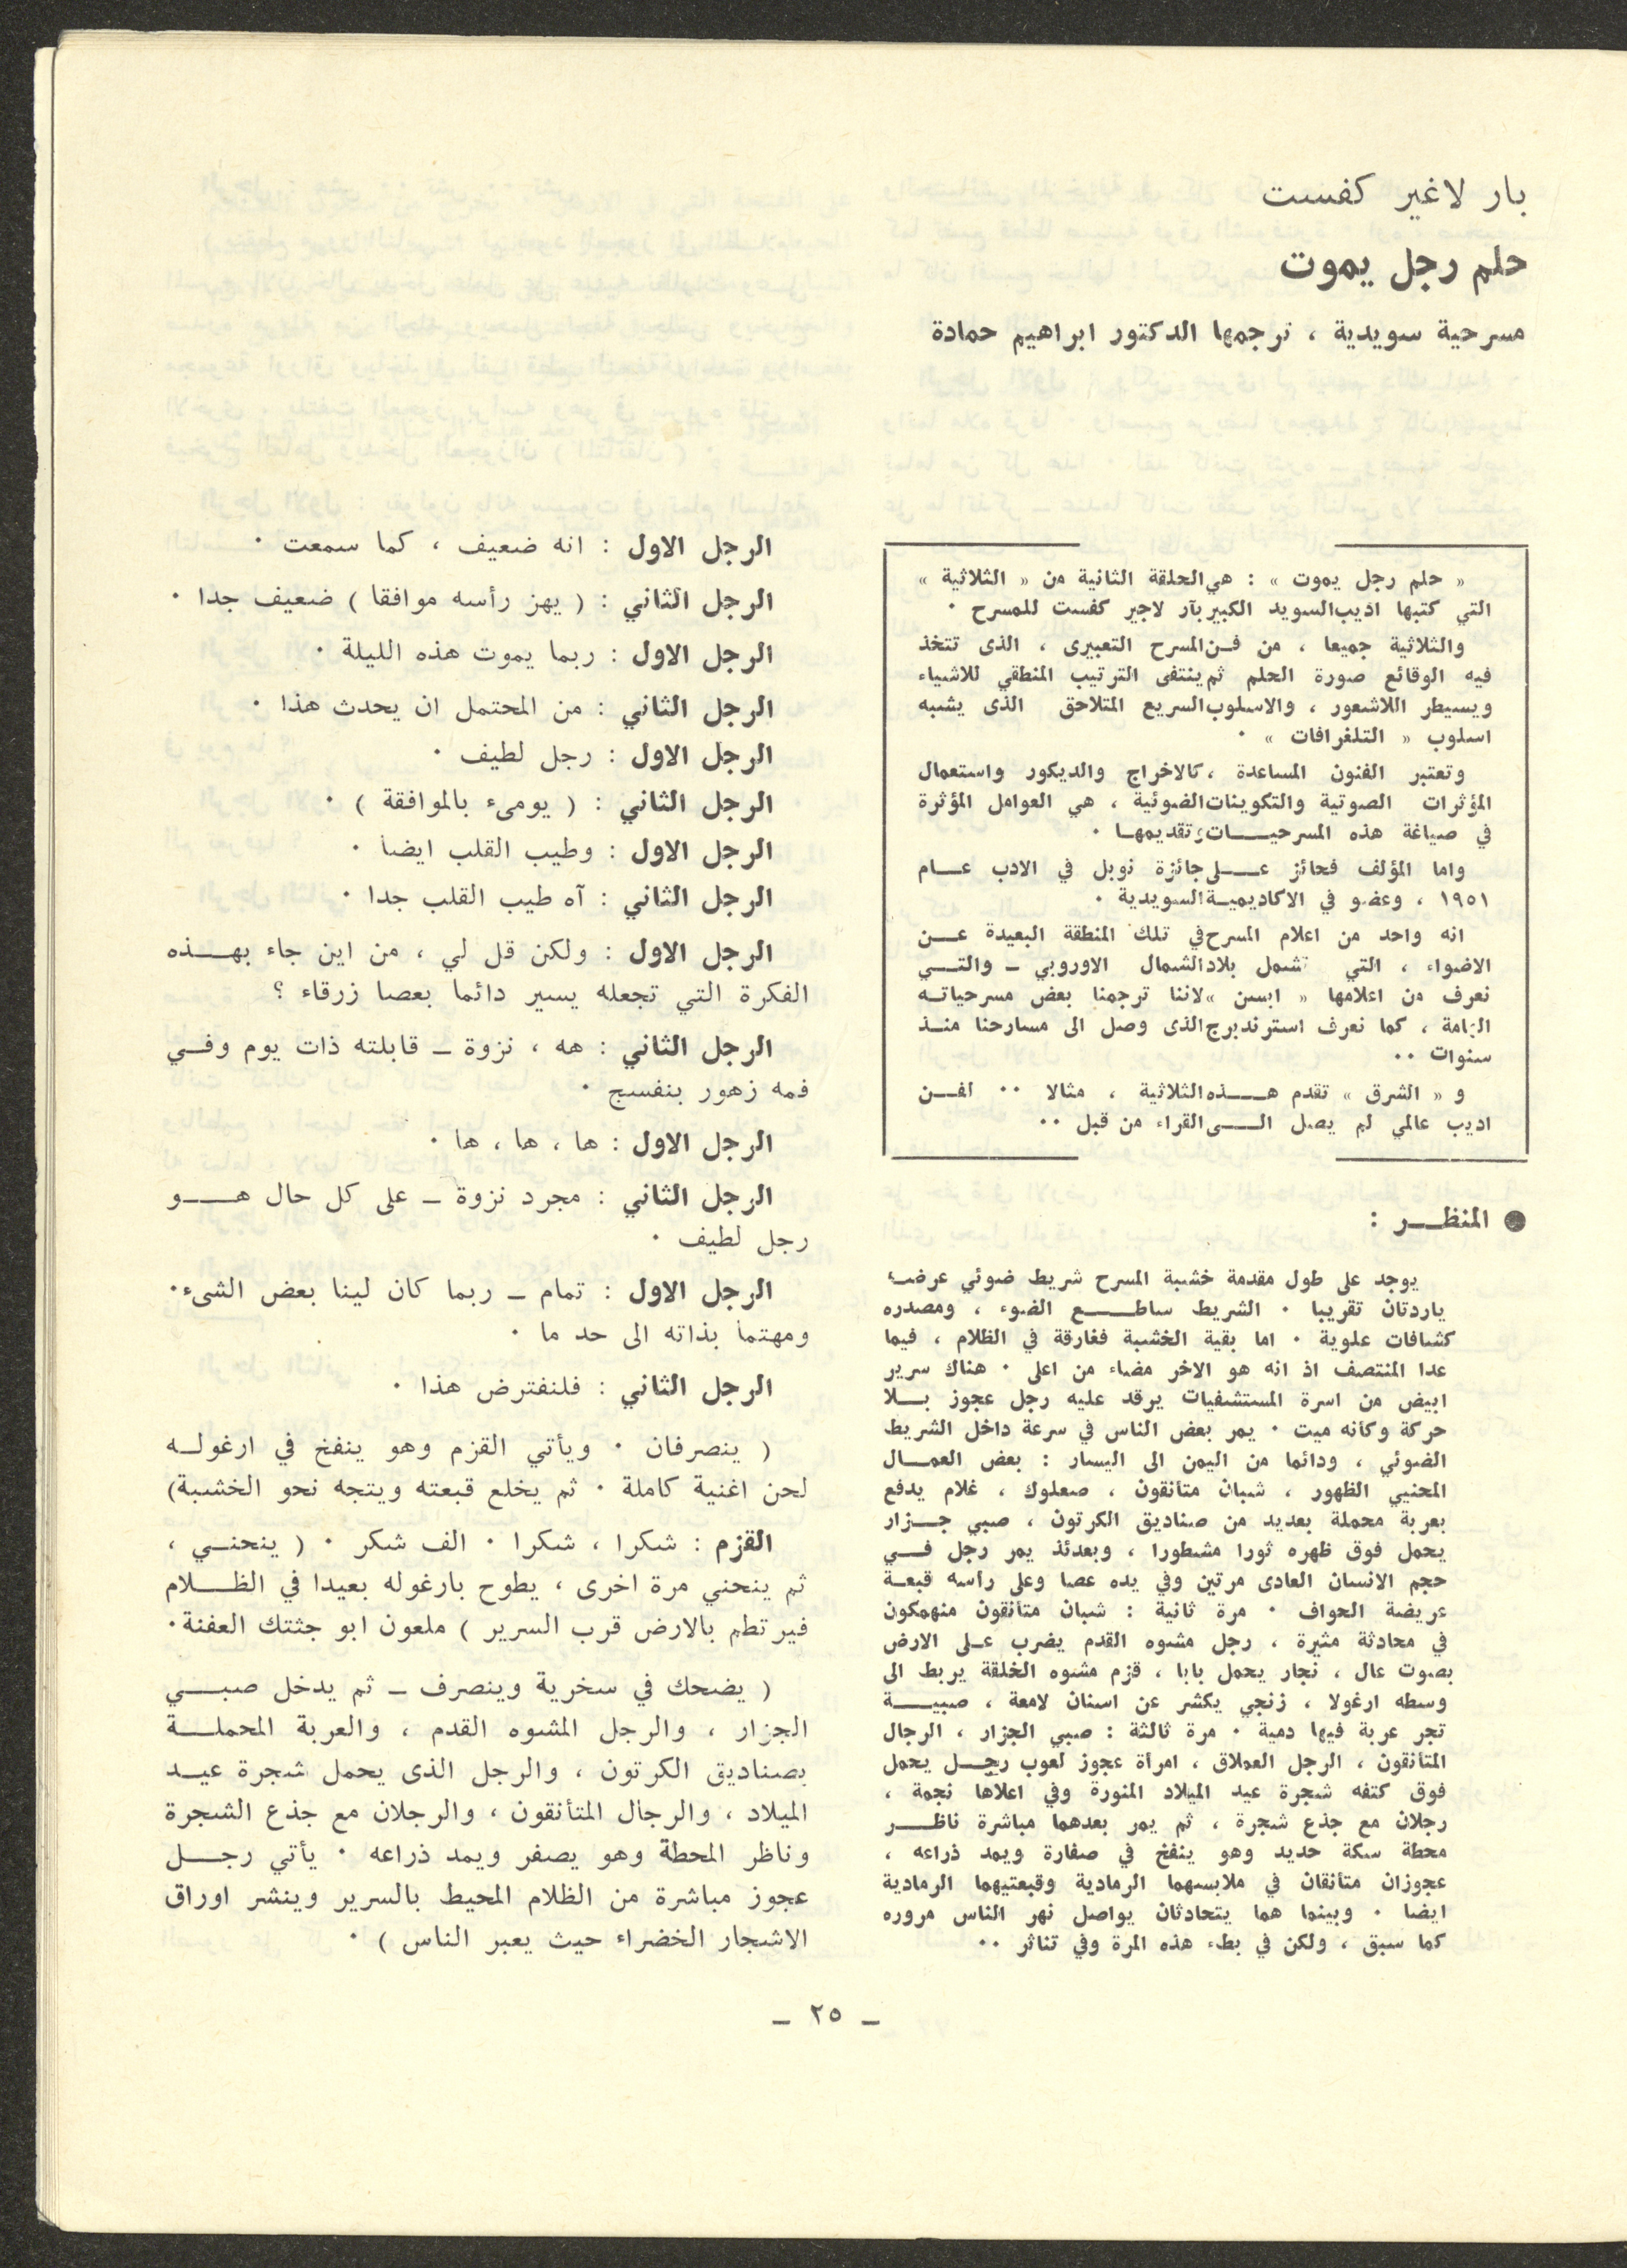 بار لاغير كفست
حلم رجل يموت
مسرحية سويدية ، ترجمها الدكتور ابراهيم حمادة
« حلم رجل يموت » : هي الحلقة الثانية من « الثلاثية »
التي كتبها اديب السويد الكبير بآر لاجير كفست للمسرح ٠
والثلاثية جميعا ، من فن المسرح التعبيرى ، الذى تتخذ
فيه الوقائع صورة الحلم ثم ينتفى الترتيب المنطقي للاشياء
ويسيطر اللاشعور ، والاسلوب السريع المتلاحق الذى يشبه
اسلوب « التلغرافات » ٠
وتعتبر الفنون المساعدة ، كالاخراج والديكور واستعمال
المؤثرات الصوتية والتكوينات الضوئية ، هي العوامل المؤثرة
في صياغة هذه المسرحيات وتقديمها ٠
واما المؤلف فحائز على جائزة نوبل في الادب عام
١٩٥١ ، وعضو في الاكاديمية السويدية ٠
انه واحد من اعلام المسرح في تلك المنطقة البعيدة عن
الاضواء ، التي تشمل بلاد الشمال الاوروبي ـ والتي
نعرف من اعلامها « ابسن » لاننا ترجمنا بعض مسرحياته
الهامة ، كما نعرف استرندبرج الذى وصل الى مسارحنا منذ
سنوات ٠٠
و « الشرق » تقدم هذه الثلاثية ، مثالا ٠٠ لفن
اديب عالمي لم يصل الى القراء من قبل ٠٠
● المنظر :
يوجد على طول مقدمة خشبة المسرح شريط ضوئي عرضه
ياردتان تقريبا ٠ الشريط ساطع الضوء ، ومصدره
كشافات علوية ٠ اما بقية الخشبة فغارقة في الظلام ، فيما
عدا المنتصف اذ انه هو الاخر مضاء من اعلى ٠ هناك سرير
ابيض من اسرة المستشفيات يرقد عليه رجل عجوز بلا
حركة وكأنه ميت ٠ يمر بعض الناس في سرعة داخل الشريط
الضوئي ، ودائما من اليمن الى اليسار : بعض العمال
المحنيي الظهور ، شبان متأنقون ، صعلوك ، غلام يدفع
بعربة محملة بعديد من صناديق الكرتون ، صبي جزار
يحمل فوق ظهره ثورا مشطورا ، وبعدئذ يمر رجل في
حجم الانسان العادى مرتين وفي يده عصا وعلى رأسه قبعة
عريضة الحواف ٠ مرة ثانية : شبان متأنقون منهمكون
في محادثة مثيرة ، رجل مشوه القدم يضرب على الارض
بصوت عال ، نجار يحمل بابا ، قزم مشوه الخلقة يربط الى
وسطه ارغولا ، زنجي يكشر عن اسنان لامعة ، صبية
تجر عربة فيها دمية ٠ مرة ثالثة : صبي الجزار ، الرجال
المتأنقون ، الرجل العملاق ، امرأة عجوز لعوب رجل يحمل
فوق كتفه شجرة عيد الميلاد المنورة وفي اعلاها نجمة ،
رجلان مع جذع شجرة ، ثم يمر بعدهما مباشرة ناظر
محطة سكة حديد وهو ينفخ في صفارة ويمد ذراعه ،
عجوزان متأنقان في ملابسهما الرمادية وقبعتيهما الرمادية
ايضا ٠ وبينما هما يتحادثان يواصل نهر الناس مروره
كما سبق ، ولكن في بطء هذه المرة وفي تناثر ٠٠
الرجل الاول : انه ضعيف ، كما سمعت ٠
الرجل الثاني : ( يهز رأسه موافقا ) ضعيف جدا ٠
الرجل الاول : ربما يموت هذه الليلة ٠
الرجل الثاني : من المحتمل ان يحدث هذا ٠
الرجل الاول : رجل لطيف ٠
الرجل الثاني : ( يومىء بالموافقة ) ٠
الرجل الاول : وطيب القلب ايضا ٠
الرجل الثاني : آه طيب القلب جدا ٠
الرجل الاول : ولكن قل لي ، من اين جاء بهذه
الفكرة التي تجعله يسير دائما بعصا زرقاء ؟
الرجل الثاني : هه ، نزوة ـ قابلته ذات يوم وفي
فمه زهور بنفسج ٠
الرجل الاول : ها ، ها ، ها ٠
الرجل الثاني : مجرد نزوة ـ على كل حال هو
رجل لطيف ٠
الرجل الاول : تمام ـ ربما كان لينا بعض الشىء٠
ومهتما بذاته الى حد ما ٠
الرجل الثاني : فلنفترض هذا ٠
( ينصرفان ٠ ويأتي القزم وهو ينفخ في ارغوله
لحن اغنية كاملة ٠ ثم يخلع قبعته ويتجه نحو الخشبة)
القزم : شكرا ، شكرا ٠ الف شكر ٠ ( ينحني ،
ثم ينحني مرة اخرى ، يطوح بارغوله بعيدا في الظلام
فيرتطم بالارض قرب السرير ) ملعون ابو جثتك العفنة٠
( يضحك في سخرية وينصرف ـ ثم يدخل صبي
الجزار ، والرجل المشوه القدم ، والعربة المحملة
بصناديق الكرتون ، والرجل الذى يحمل شجرة عيد
الميلاد ، والرجال المتأنقون ، والرجلان مع جذع الشجرة
وناظر المحطة وهو يصفر ويمد ذراعه ٠ يأتي رجل
عجوز مباشرة من الظلام المحيط بالسرير وينشر اوراق
الاشجار الخضراء حيث يعبر الناس ) ٠
ـ ٢٥ ـ